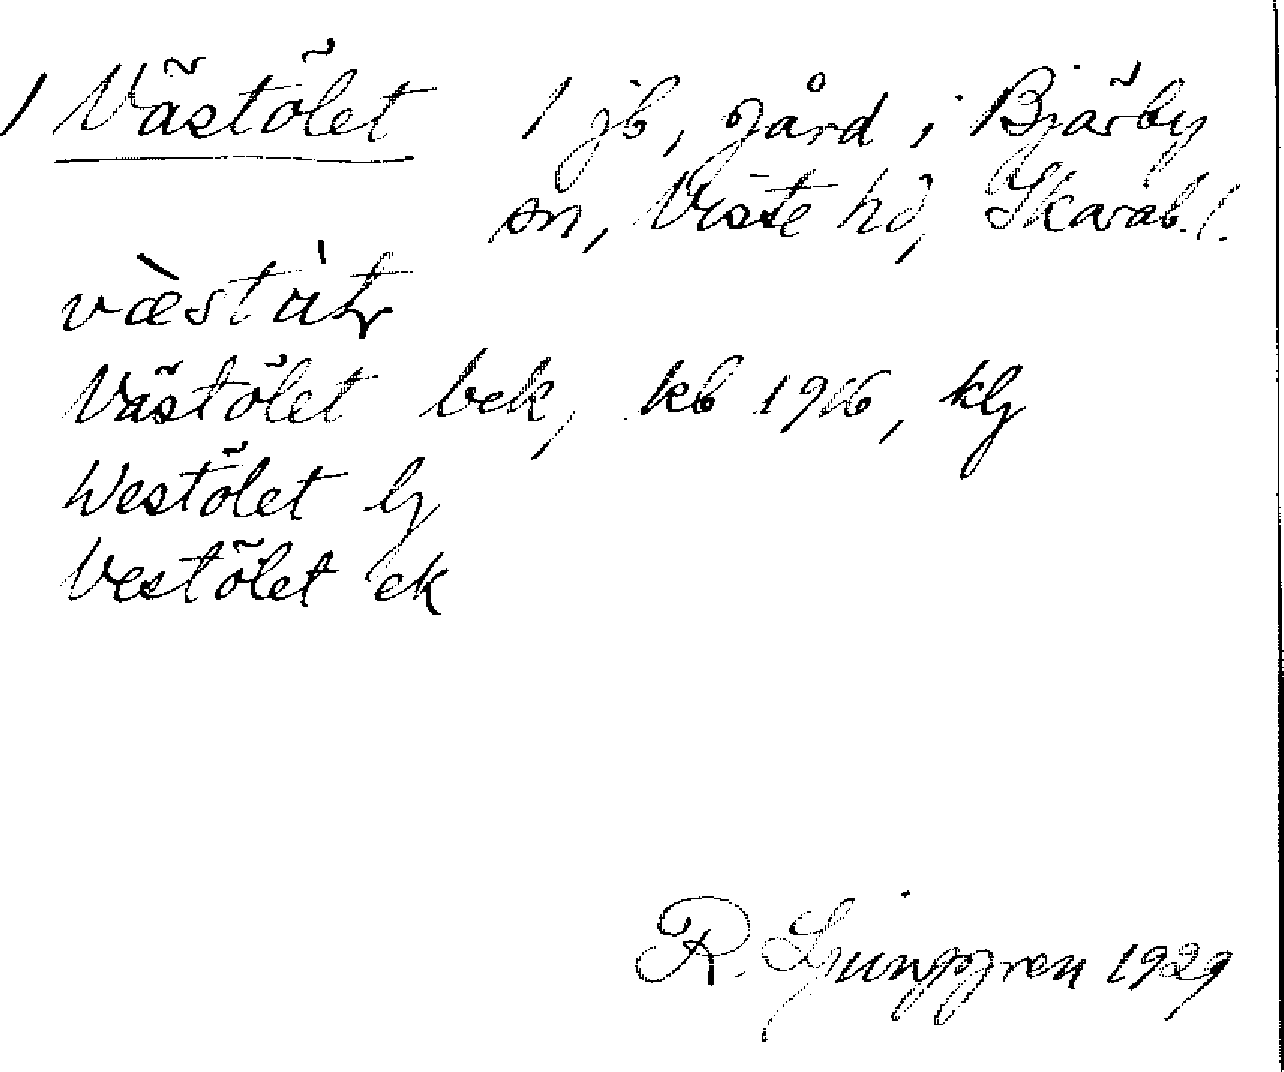 1 Västölet 1 jb, gård i Bjärby
sn, Viste hd, Skarab.l.
Västölet bek, kb 1916, klj
Westölet lj
Vestölet ek
R. Ljunggren 1929